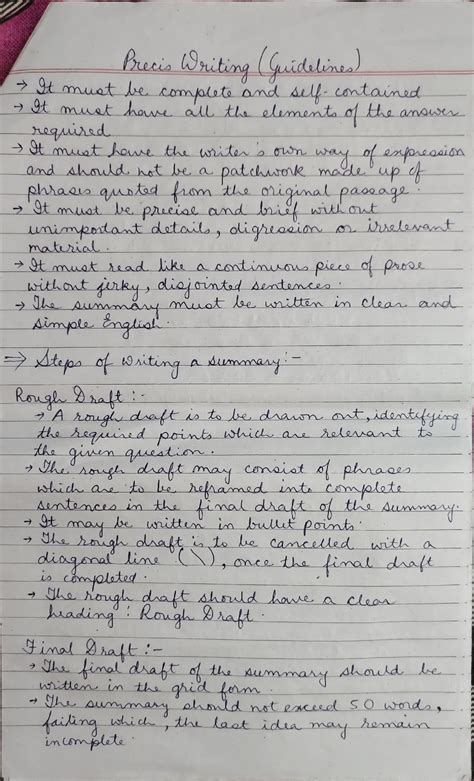 Precis Writing (Guidelines)
→ It must be complete and self-contained
→ It must have all the elements of the answer
required
→ It must have the writer's own way of expression
and should not be a patchwork made up of
phrases quoted from the original passage.
→ It must be precise and brief without
unimportant details, digression or irrelevant
material.
→ It must read like a continuous piece of prose
without jerky, disjointed sentences.
→ The summary must be written in clear and
simple English.
⇒ Steps of writing a summary:-
Rough Draft :-
→ A rough draft is to be drawn out, identifying
the required points which are relevant to
the given question.
→ The rough draft may consist of phrases
which are to be reframed into complete
sentences in the final draft of the summary.
→ It may be written in bullet points.
→ The rough draft is to be cancelled with a
diagonal line (\), once the final draft
is completed.
→ The rough draft should have a clear
heading : Rough Draft.
Final Draft :-
→ The final draft of the summary should be
written in the grid form.
→ The summary should not exceed 50 words,
failing which, the last idea may remain
incomplete.